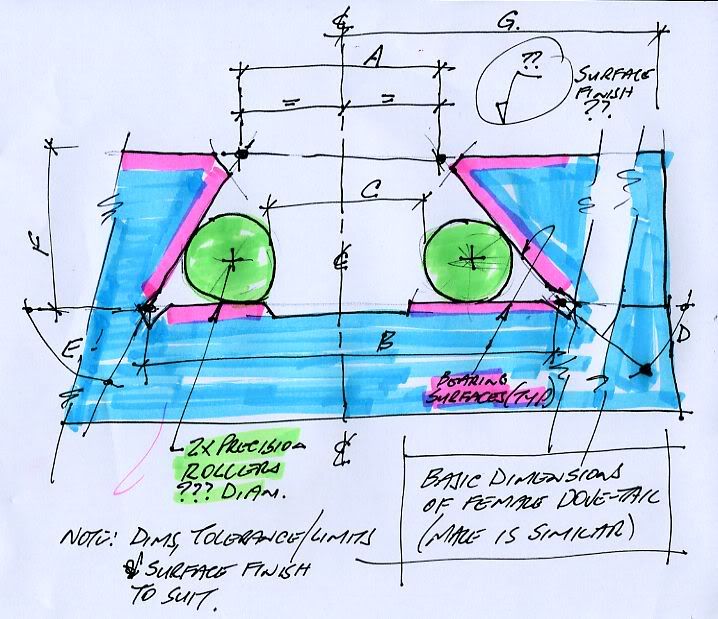 ℄
G.
A
??
SURFACE
FINISH
??.
=
=
C
F
℄
E
B
D
BEARING
SURFACES (TYP)
2X PRECISION
ROLLERS
??? DIAM.
℄
BASIC DIMENSIONS
OF FEMALE DOVE-TAIL
(MALE IS SIMILAR)
NOTE: DIMS, TOLERANCE/LIMITS
& SURFACE FINISH
TO SUIT.